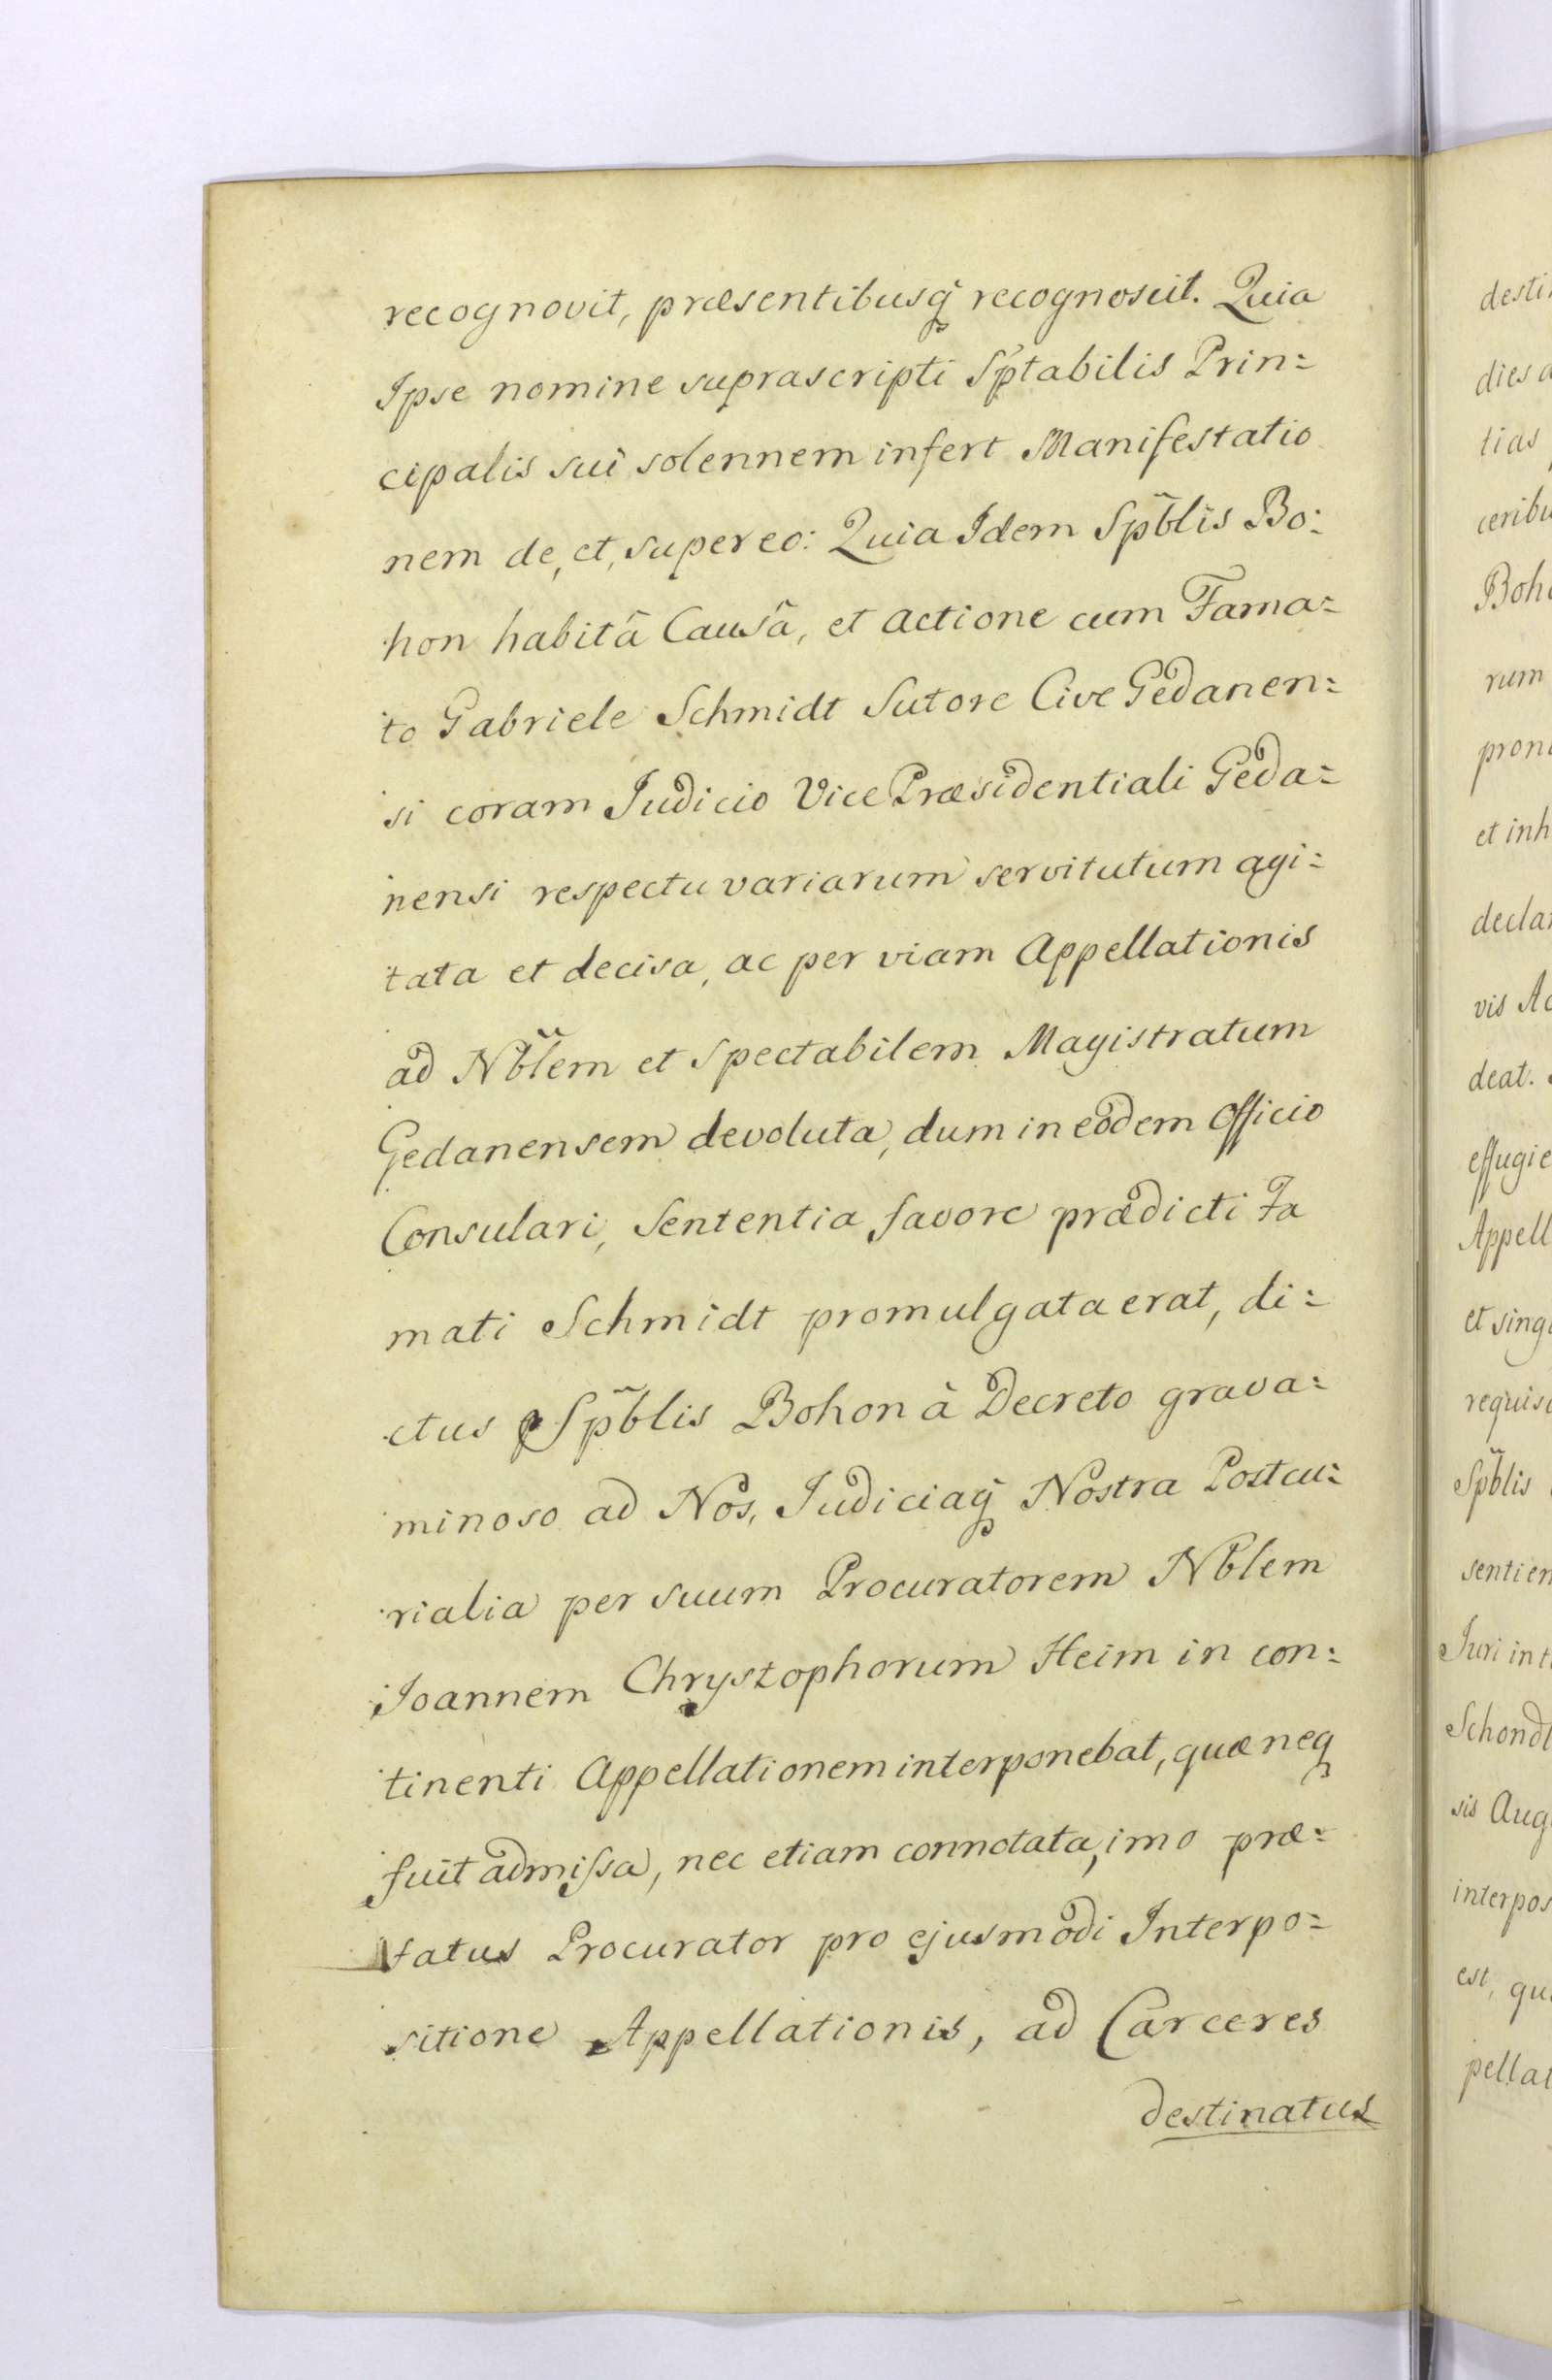 recognovit, præsentibusq̃ recognoscit. Quia
Ipse nomine suprascripti Sp̃tabilis Prin=
cipalis sui solennem infert Manifestatio
nem de, et, super eo: Quia Idem Sp̃blis Bo=
hon habitâ Causâ, et actione cum Fama=
to Gabriele Schmidt Sutore Cive Gedanen=
si coram Judicio Vice Præsidentiali Geda=
nensi respectu variarum servitutum agi=
tata et decisa, ac per viam Appellationis
ad Nb̃lem et Spectabilem Magistratum
Gedanensem devoluta, dum in eodem Officio
Consulari, Sententia favore prædicti Fa
mati Schmidt promulgata erat, di=
ctus Sp̃blis Bohon à Decreto grava=
minoso ad Nos, Judiciaq̃ Nostra Postcu=
rialia per suum Procuratorem Nblem
Joannem Chrystophorum Heim in con=
tinenti Appellationem interponebat, quæ neq
fuit admissa, nec etiam connotata, imo præ=
fatus Procurator pro ejusmodi Interpo=
sitione Appellationis, ad Carceres
destinatus
desti
dies a
tias
ceribu
Boho
rum
pron
et inh
decla
vis Ac
deat.
effugie
Appell
et sing
requis
Sp̃blis
sentien
Juri int
Schond
sis Aug
interpos
est, qu
pellat